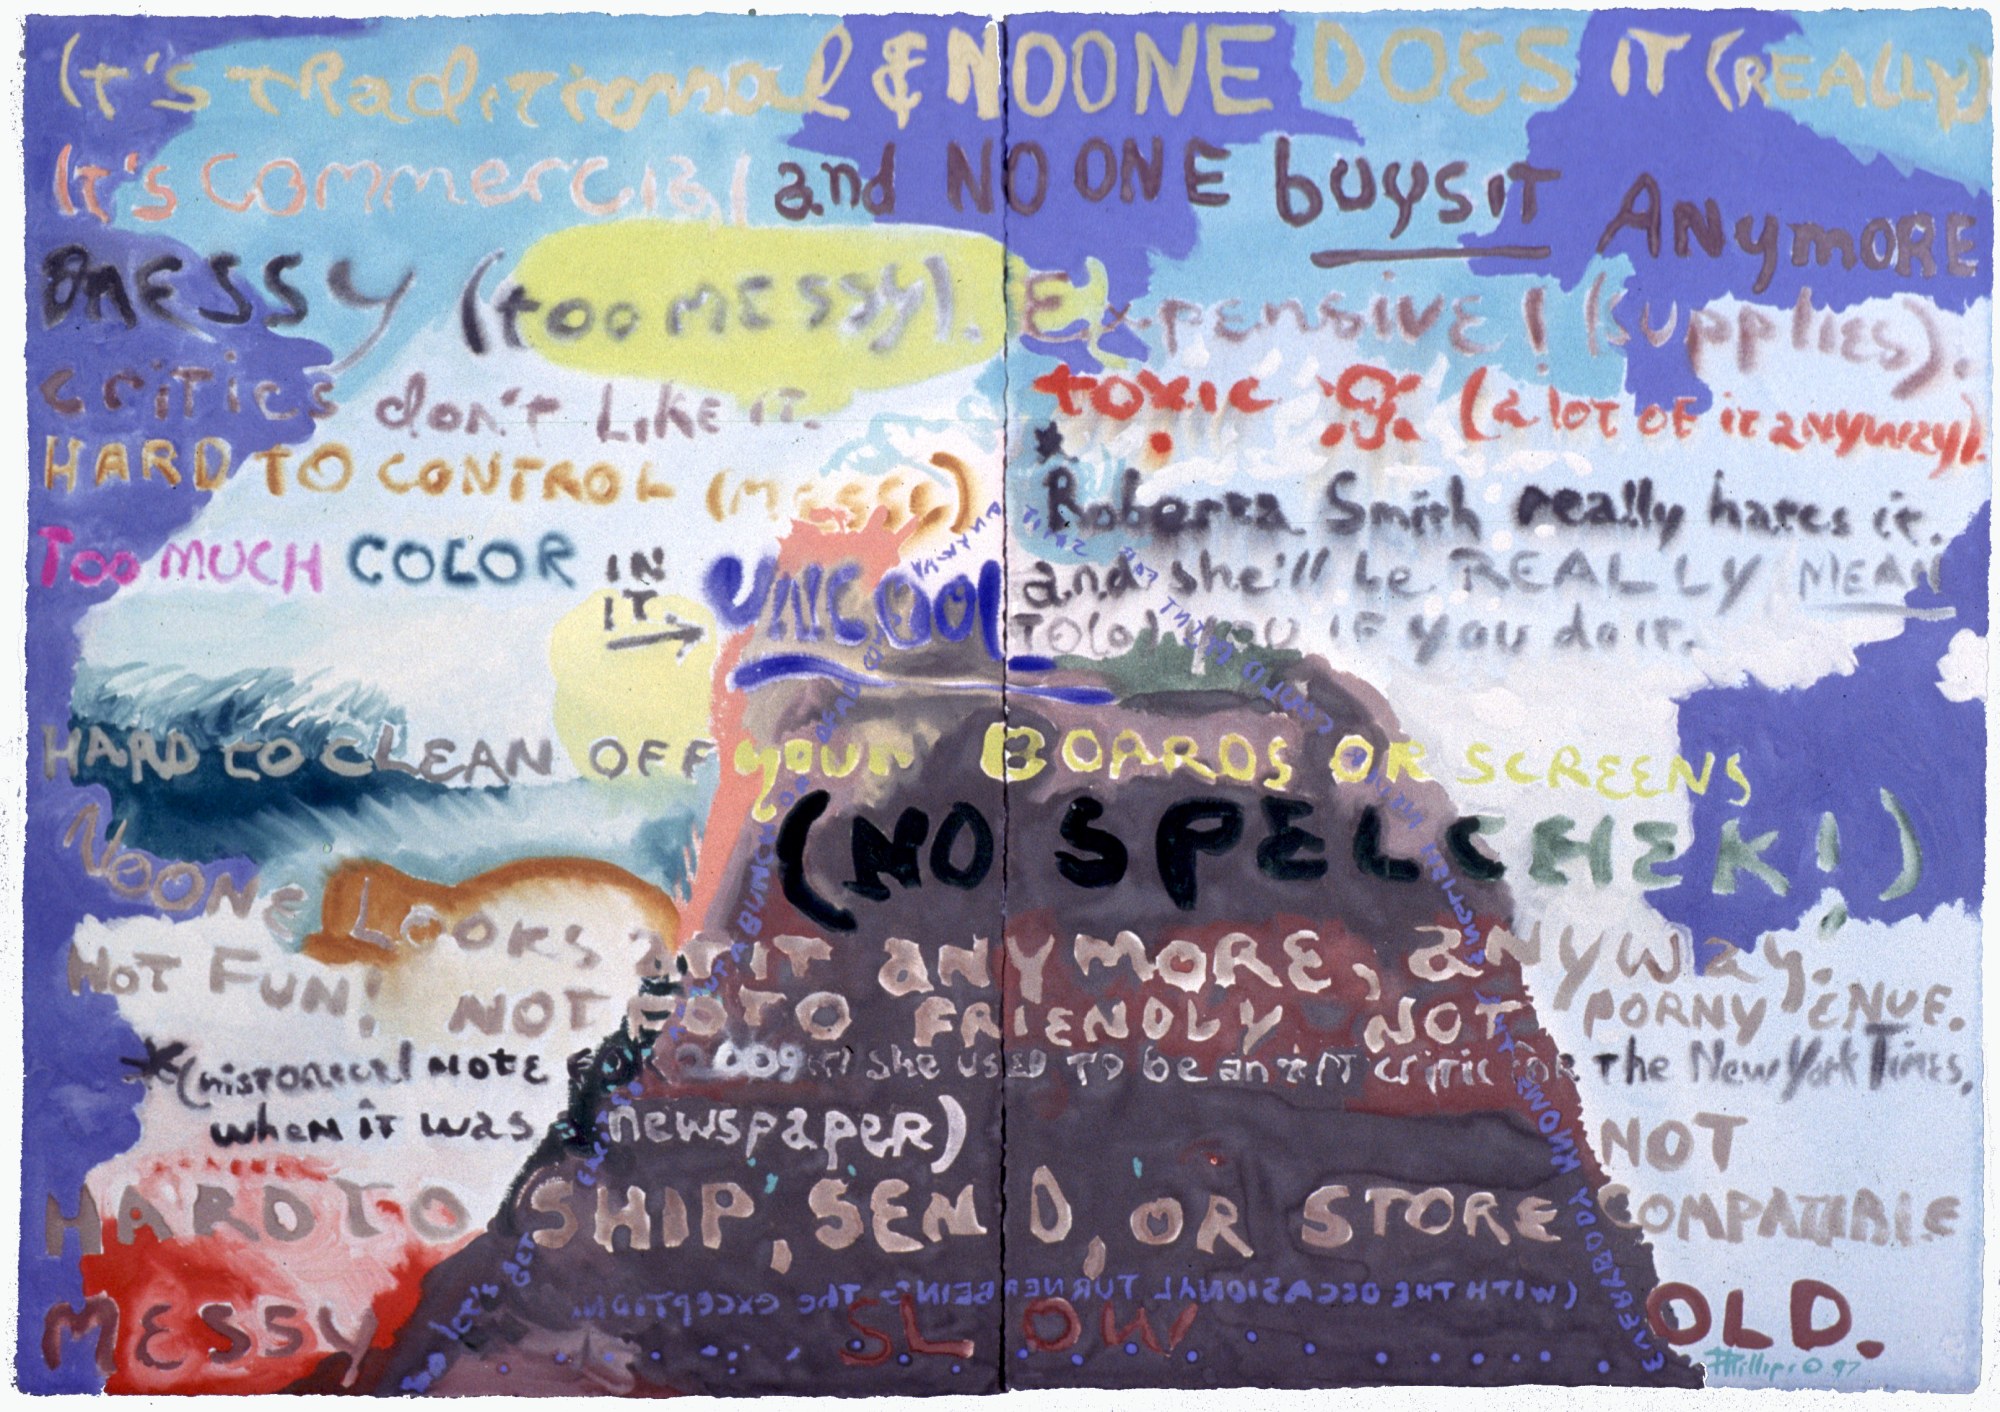 it's traditional & NOONE DOES IT (REALLY)
it's commercial and NO ONE buys it ANymORE
MESSY (too MESSY). Expensive! (supplies).
critics don't LIKE IT.
toxic (a lot of it anyway).
HARD TO CONTROL (MESSY)
* Roberta Smith really hates it.
Too MUCH COLOR IN IT. → UNCOOL
and she'll be REALLY MEAN
TO(o) YOU IF YOU do it.
HARD TO CLEAN OFF your BOARDS OR SCREENS
(NO SPELCHEK!)
NOONE LOOKS at IT ANYMORE, anyway.
NOT FUN! NOT FOTO FRIENDLY NOT PORNY ENUF.
*(historical NOTE FOR 2009: she used to be an art critic for the New York Times,
when it was a newspaper)
NOT
HARD TO SHIP, SEND, OR STORE COMPATIBLE
(WITH THE OCCASIONAL TURNER BEING THE EXCEPTION)
MESSY SLOW OLD.
PHillips © 97
LET'S GET
A BUNCH OF DEAD
COULD PAINT
ENGLISH
EVERYBODY KNOWS